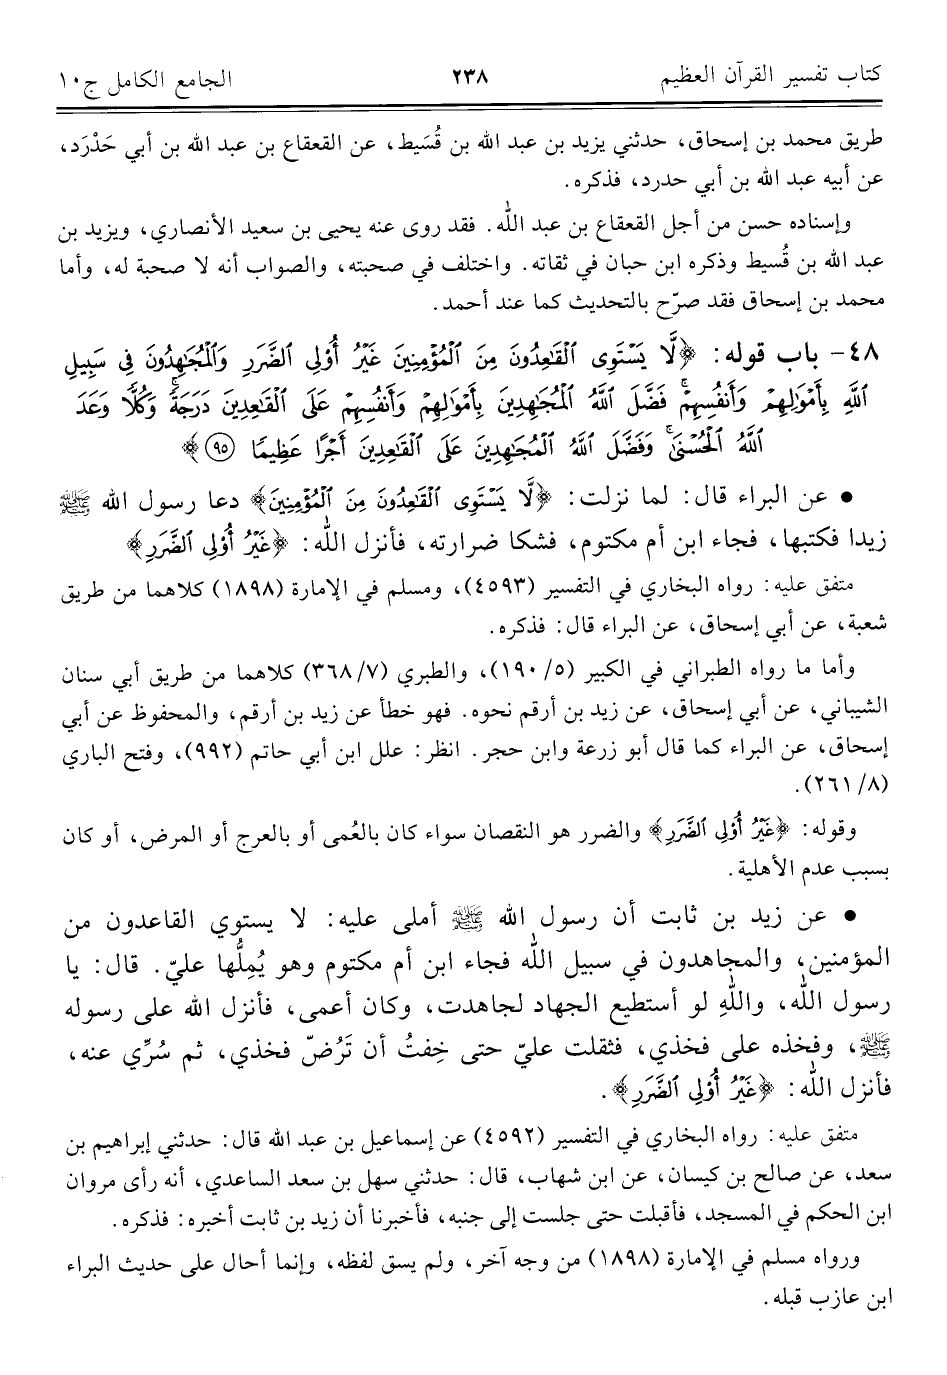 كتاب تفسير القرآن العظيم ٢٣٨ الجامع الكامل ج١٠
طريق محمد بن إسحاق، حدثني يزيد بن عبد الله بن قُسَيط، عن القعقاع بن عبد الله بن أبي حَدْرَد،
عن أبيه عبد الله بن أبي حدرد، فذكره.
وإسناده حسن من أجل القعقاع بن عبد الله. فقد روى عنه يحيى بن سعيد الأنصاري، ويزيد بن
عبد الله بن قُسيط وذكره ابن حبان في ثقاته. واختلف في صحبته، والصواب أنه لا صحبة له، وأما
محمد بن إسحاق فقد صرّح بالتحديث كما عند أحمد.
٤٨- باب قوله: ﴿لَّا يَسْتَوِى ٱلْقَٰعِدُونَ مِنَ ٱلْمُؤْمِنِينَ غَيْرُ أُو۟لِى ٱلضَّرَرِ وَٱلْمُجَٰهِدُونَ فِى سَبِيلِ
ٱللَّهِ بِأَمْوَٰلِهِمْ وَأَنفُسِهِمْ ۚ فَضَّلَ ٱللَّهُ ٱلْمُجَٰهِدِينَ بِأَمْوَٰلِهِمْ وَأَنفُسِهِمْ عَلَى ٱلْقَٰعِدِينَ دَرَجَةً ۚ وَكُلًّا وَعَدَ
ٱللَّهُ ٱلْحُسْنَىٰ ۚ وَفَضَّلَ ٱللَّهُ ٱلْمُجَٰهِدِينَ عَلَى ٱلْقَٰعِدِينَ أَجْرًا عَظِيمًا (٩٥)﴾
• عن البراء قال: لما نزلت: ﴿لَّا يَسْتَوِى ٱلْقَٰعِدُونَ مِنَ ٱلْمُؤْمِنِينَ﴾ دعا رسول الله ﷺ
زيدا فكتبها، فجاء ابن أم مكتوم، فشكا ضرارته، فأنزل الله: ﴿غَيْرُ أُو۟لِى ٱلضَّرَرِ﴾
متفق عليه: رواه البخاري في التفسير (٤٥٩٣)، ومسلم في الإمارة (١٨٩٨) كلاهما من طريق
شعبة، عن أبي إسحاق، عن البراء قال: فذكره.
وأما ما رواه الطبراني في الكبير (٥/ ١٩٠)، والطبري (٧/ ٣٦٨) كلاهما من طريق أبي سنان
الشيباني، عن أبي إسحاق، عن زيد بن أرقم نحوه. فهو خطأ عن زيد بن أرقم، والمحفوظ عن أبي
إسحاق، عن البراء كما قال أبو زرعة وابن حجر. انظر: علل ابن أبي حاتم (٩٩٢)، وفتح الباري
(٨/ ٢٦١).
وقوله: ﴿غَيْرُ أُو۟لِى ٱلضَّرَرِ﴾ والضرر هو النقصان سواء كان بالعُمى أو بالعرج أو المرض، أو كان
بسبب عدم الأهلية.
• عن زيد بن ثابت أن رسول الله ﷺ أملى عليه: لا يستوي القاعدون من
المؤمنين، والمجاهدون في سبيل الله فجاء ابن أم مكتوم وهو يُمِلُّها عليّ. قال: يا
رسول الله، واللهِ لو أستطيع الجهاد لجاهدت، وكان أعمى، فأنزل الله على رسوله
ﷺ، وفخذه على فخذي، فثقلت عليّ حتى خِفتُ أن تَرُضّ فخذي، ثم سُرِّي عنه،
فأنزل الله: ﴿غَيْرُ أُو۟لِى ٱلضَّرَرِ﴾.
متفق عليه: رواه البخاري في التفسير (٤٥٩٢) عن إسماعيل بن عبد الله قال: حدثني إبراهيم بن
سعد، عن صالح بن كيسان، عن ابن شهاب، قال: حدثني سهل بن سعد الساعدي، أنه رأى مروان
ابن الحكم في المسجد، فأقبلت حتى جلست إلى جنبه، فأخبرنا أن زيد بن ثابت أخبره: فذكره.
ورواه مسلم في الإمارة (١٨٩٨) من وجه آخر، ولم يسق لفظه، وإنما أحال على حديث البراء
ابن عازب قبله.